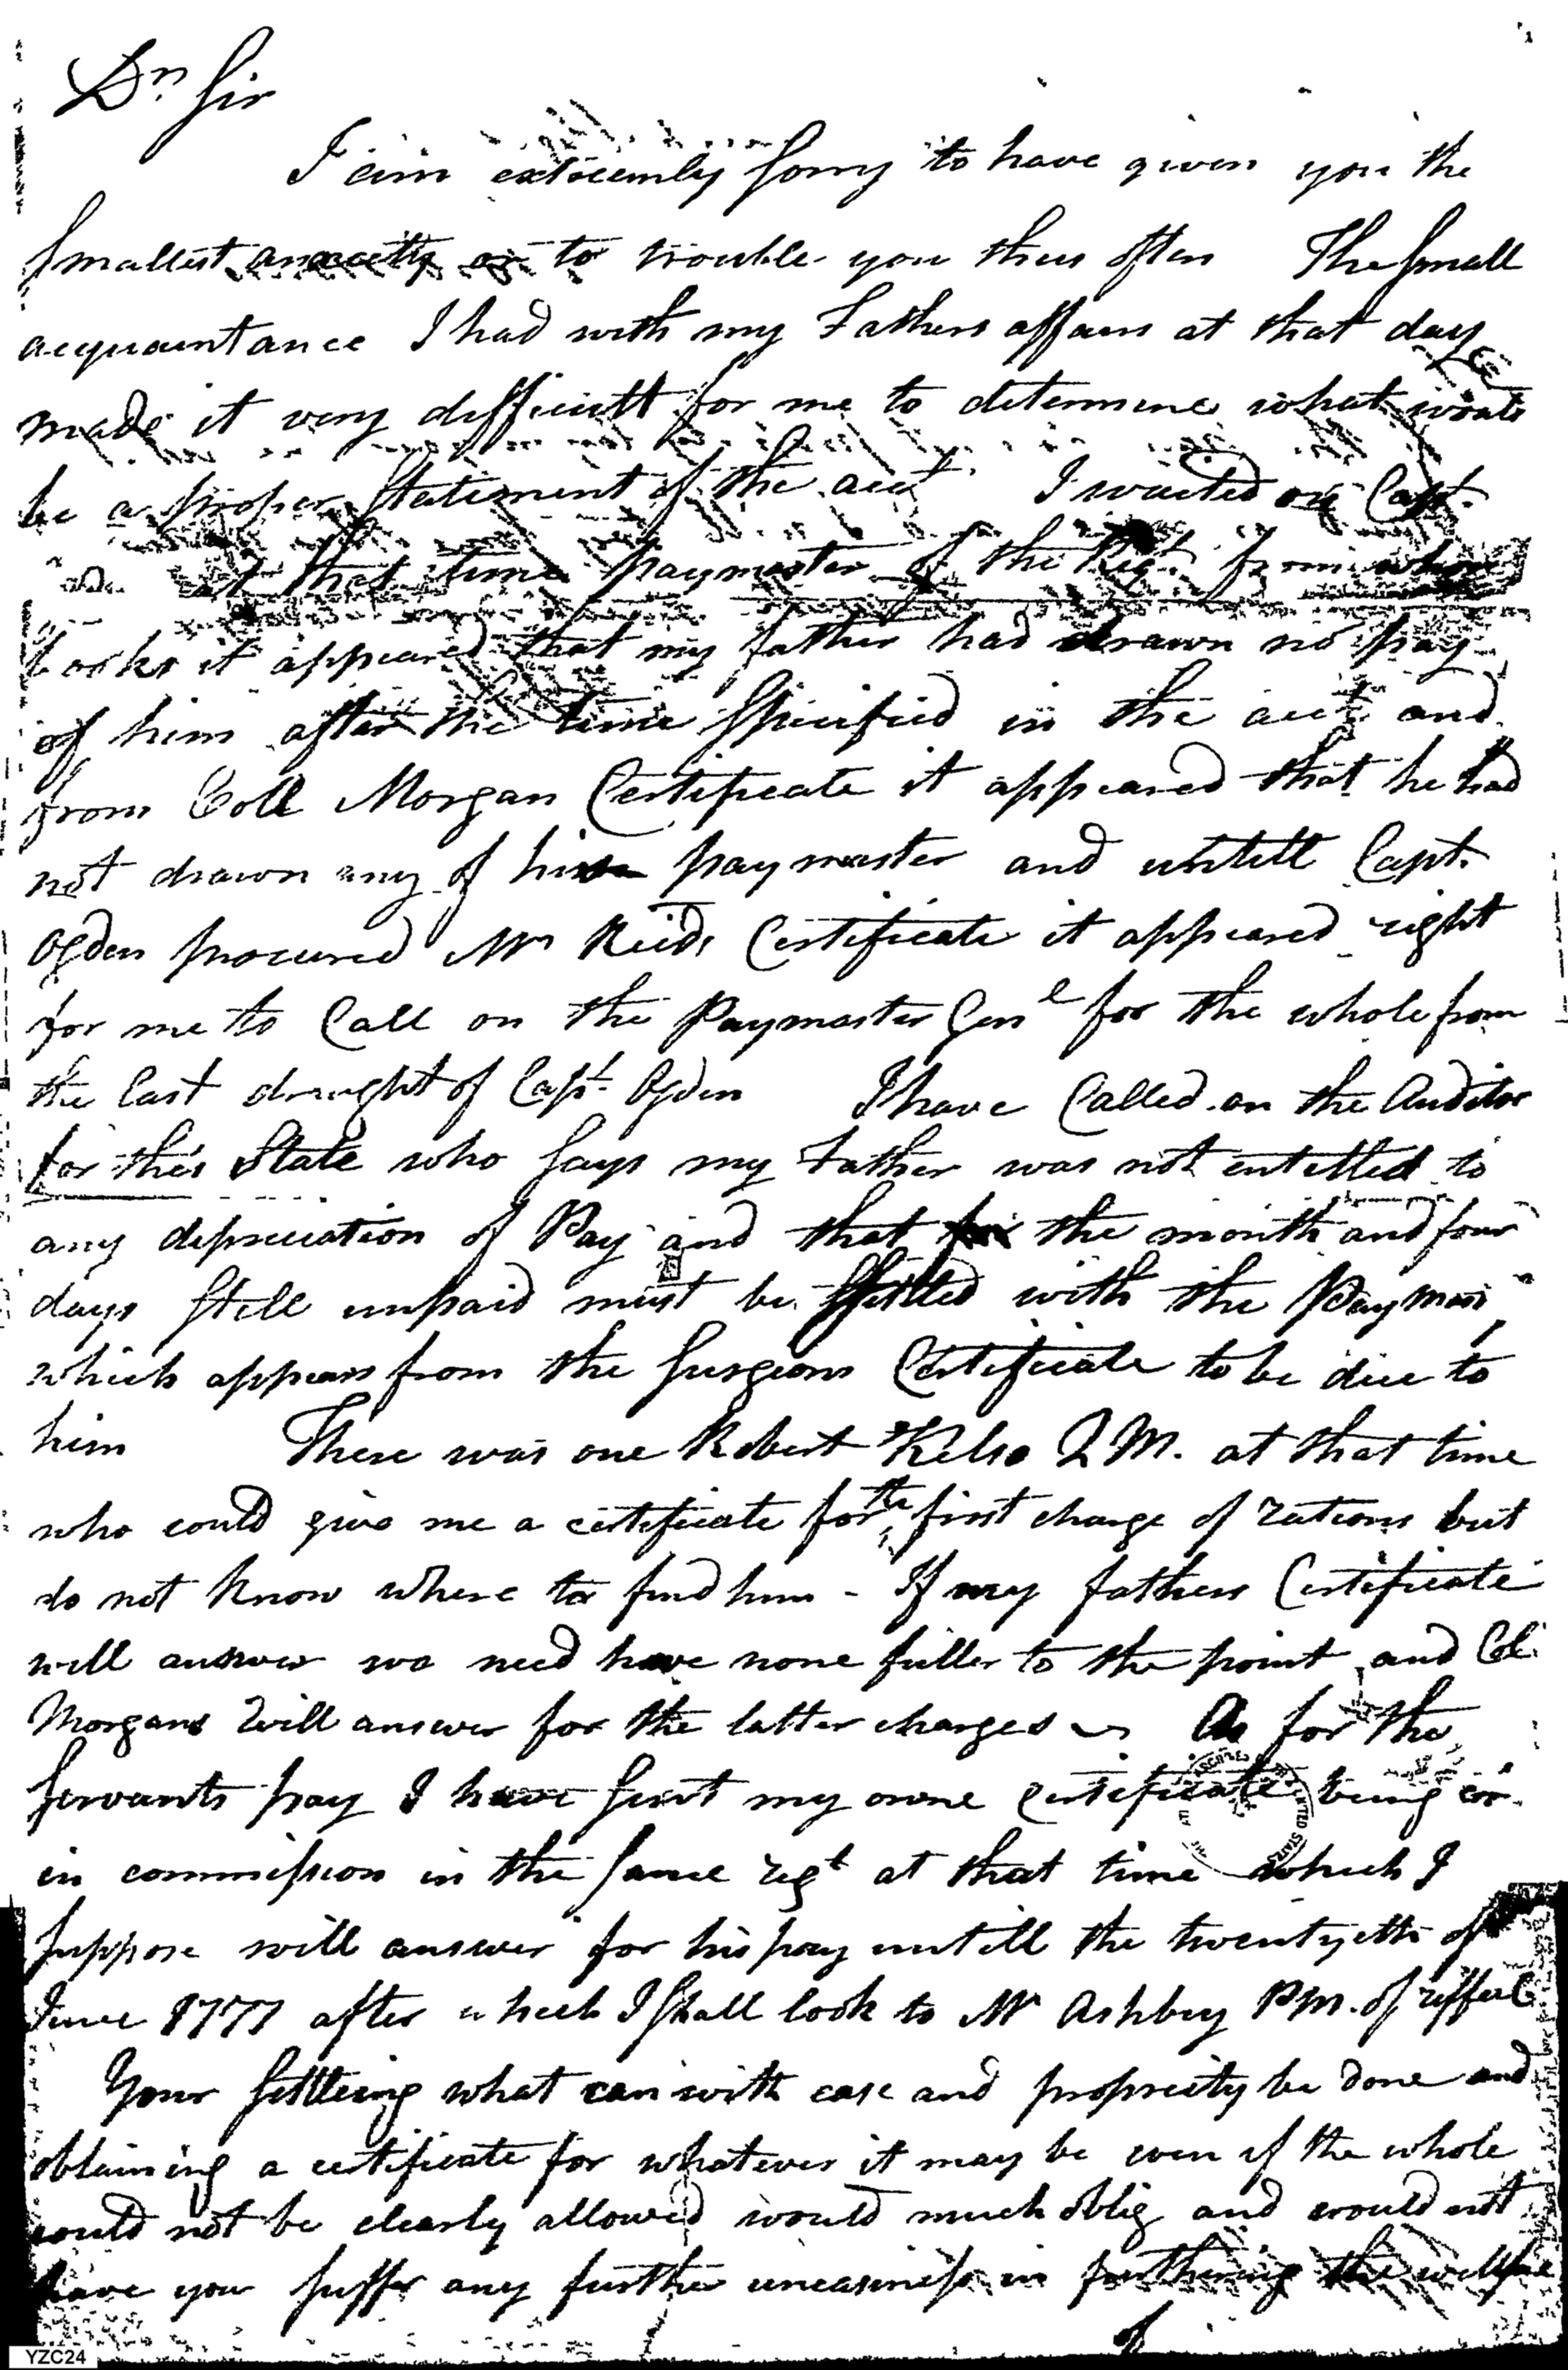 Dr Sir
I am extreemly sorry to have given you the
smallest anxiety or to trouble you thus often The small
acquaintance I had with my Fathers affairs at that day
made it very difficult for me to determine what would
be a proper Statement of the acct I waited on Capt.
at that time paymaster of the Regt. from whose
books it appeared that my father had drawn no pay
of him after the time Specified in the acct and
from Coll Morgan Certificate it appeared that he had
not drawn any of his paymaster and untill Capt.
Ogden procured Mr Reids Certificate it appeared right
for me to Call on the Paymaster Genl for the whole from
the last draught of Capt. Ogden I have Called on the Auditor
for this State who says my Father was not entitled to
any depreciation of Pay and that the month and four
days still unpaid must be settled with the Paymas
which appears from the surgeons Certificate to be due to
him There was one Robert Kelso Q M. at that time
who could give me a certificate for the first charge of rations but
do not know where to find him - If my fathers Certificate
will answer we need have none fuller to the point and Col.
Morgans will answer for the latter charges As for the
servants pay I have sent my owne certificate being
in commission in the same regt at that time which I
suppose will answer for his pay untill the twentyeth of
June 1777 after which I shall look to Mr Ashby P M. of riffell
Your settleing what can with ease and propriety be done and
obtaining a certificate for whatever it may be even if the whole
could not be clearly allowed would much oblig and would not
have you suffer any further uneasiness in furthering the
YZC24